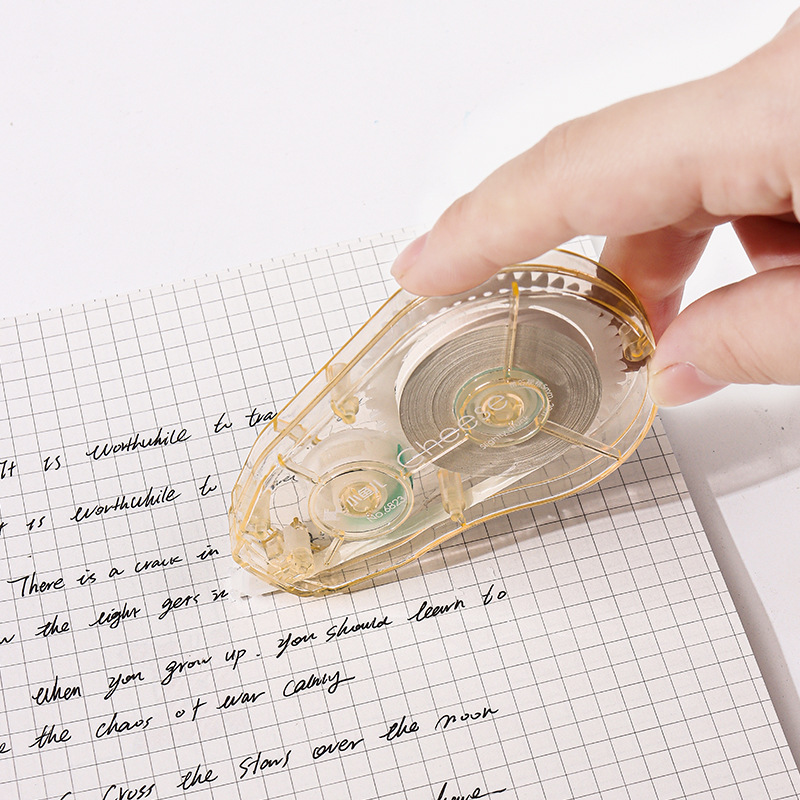 It is worthwhile to tra
t is worthwhile to
There is a crack in
the light gets in
when you grow up. you should learn to
the chaos of war calmly
Cross the stars over the moon
cheese
No.6823